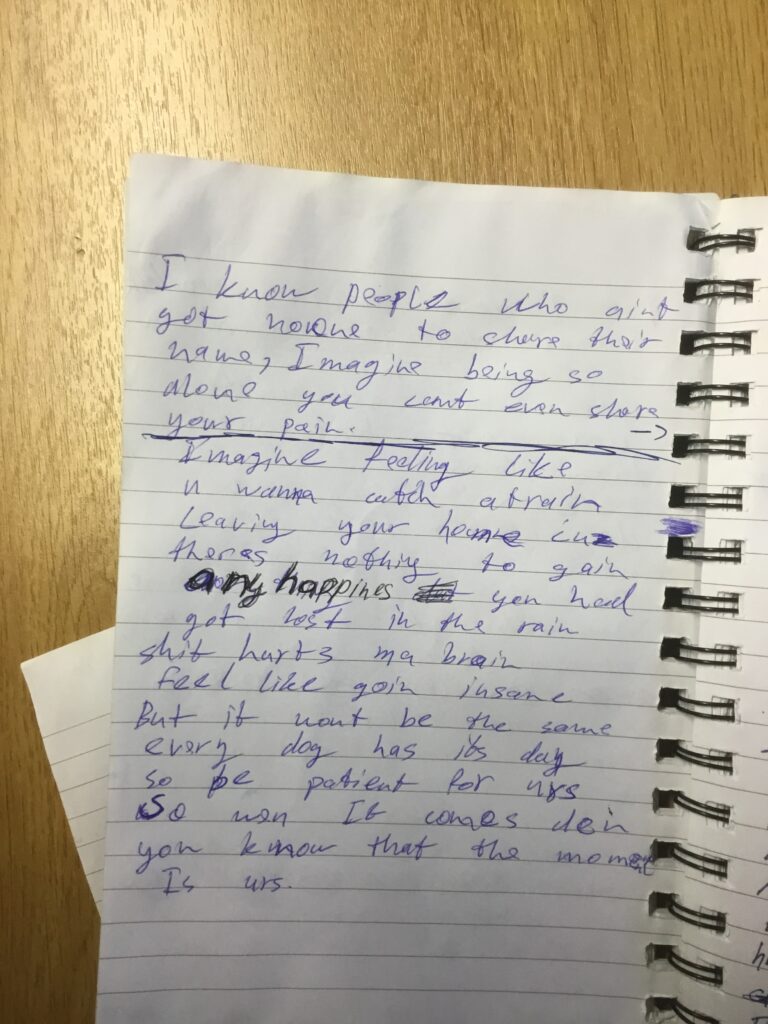 I know people who aint
got noone to share their
name, Imagine being so
alone you cant even share
your pain. →
Imagine feeling like
u wanna catch a train
Leaving your home cuz
theres nothing to gain
any happines you had
got lost in the rain
shit hurts ma brain
feel like goin insane
But it wont be the same
every dog has its day
so be patient for urs
So wen It comes den
you know that the moment
Is urs.